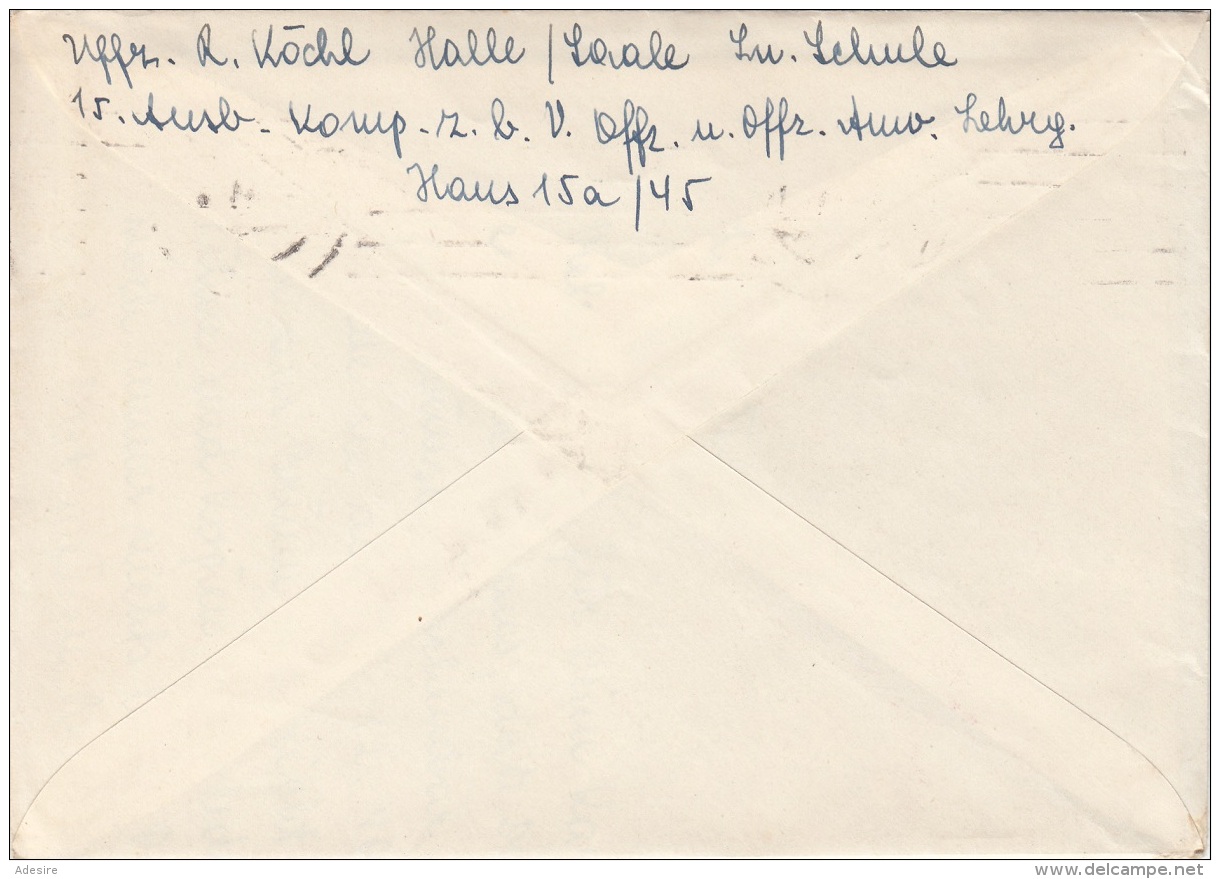 Uffz. R. Köchl Halle/Saale Ln. Schule
15. Ausb. Komp. z. b. V. Offz. u. Offz. Anw. Lehrg.
Haus 15a/45
Adesire
www.delcampe.net